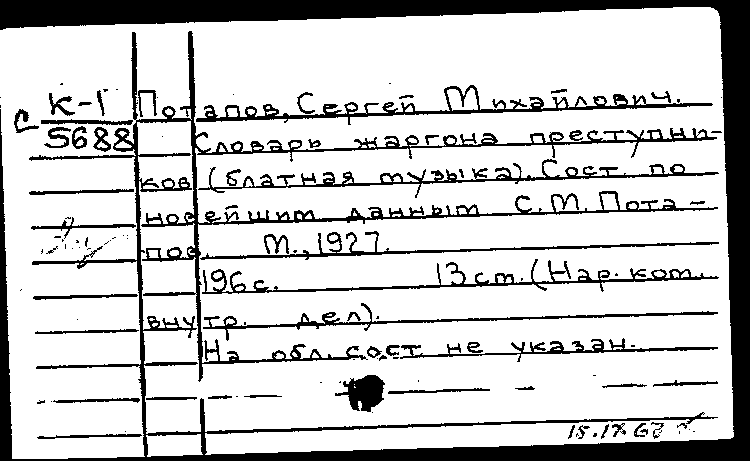 К-1 Потапов, Сергей Михайлович.
С 5688 Словарь жаргона преступни-
ков (блатная музыка). Сост. по
новейшим данным С.М. Пота-
пов. М., 1927.
196 с. 13 cm. (Нар. ком.
внутр. дел).
На обл. сост. не указан.
15.IX 67